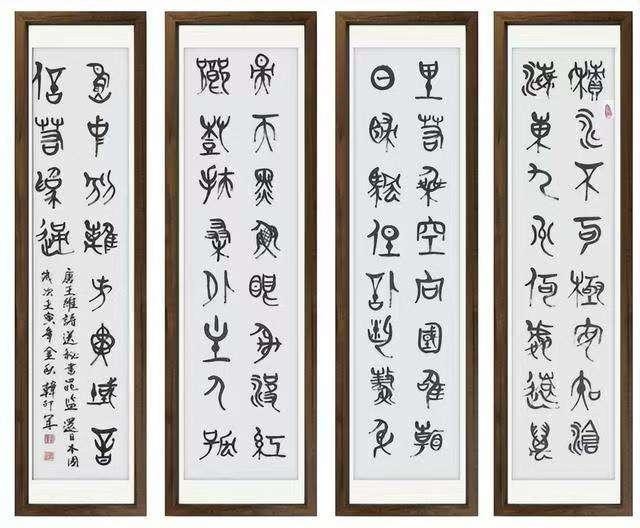 積水不可極安知滄
海東九州何處遠萬
里若乘空向國唯看
日歸帆但信風鰲身
映天黑魚眼射波紅
鄉樹扶桑外主人孤
島中別離方異域音
信若為通
唐王維詩送秘書晁監還日本国
歲次壬寅年金秋韓